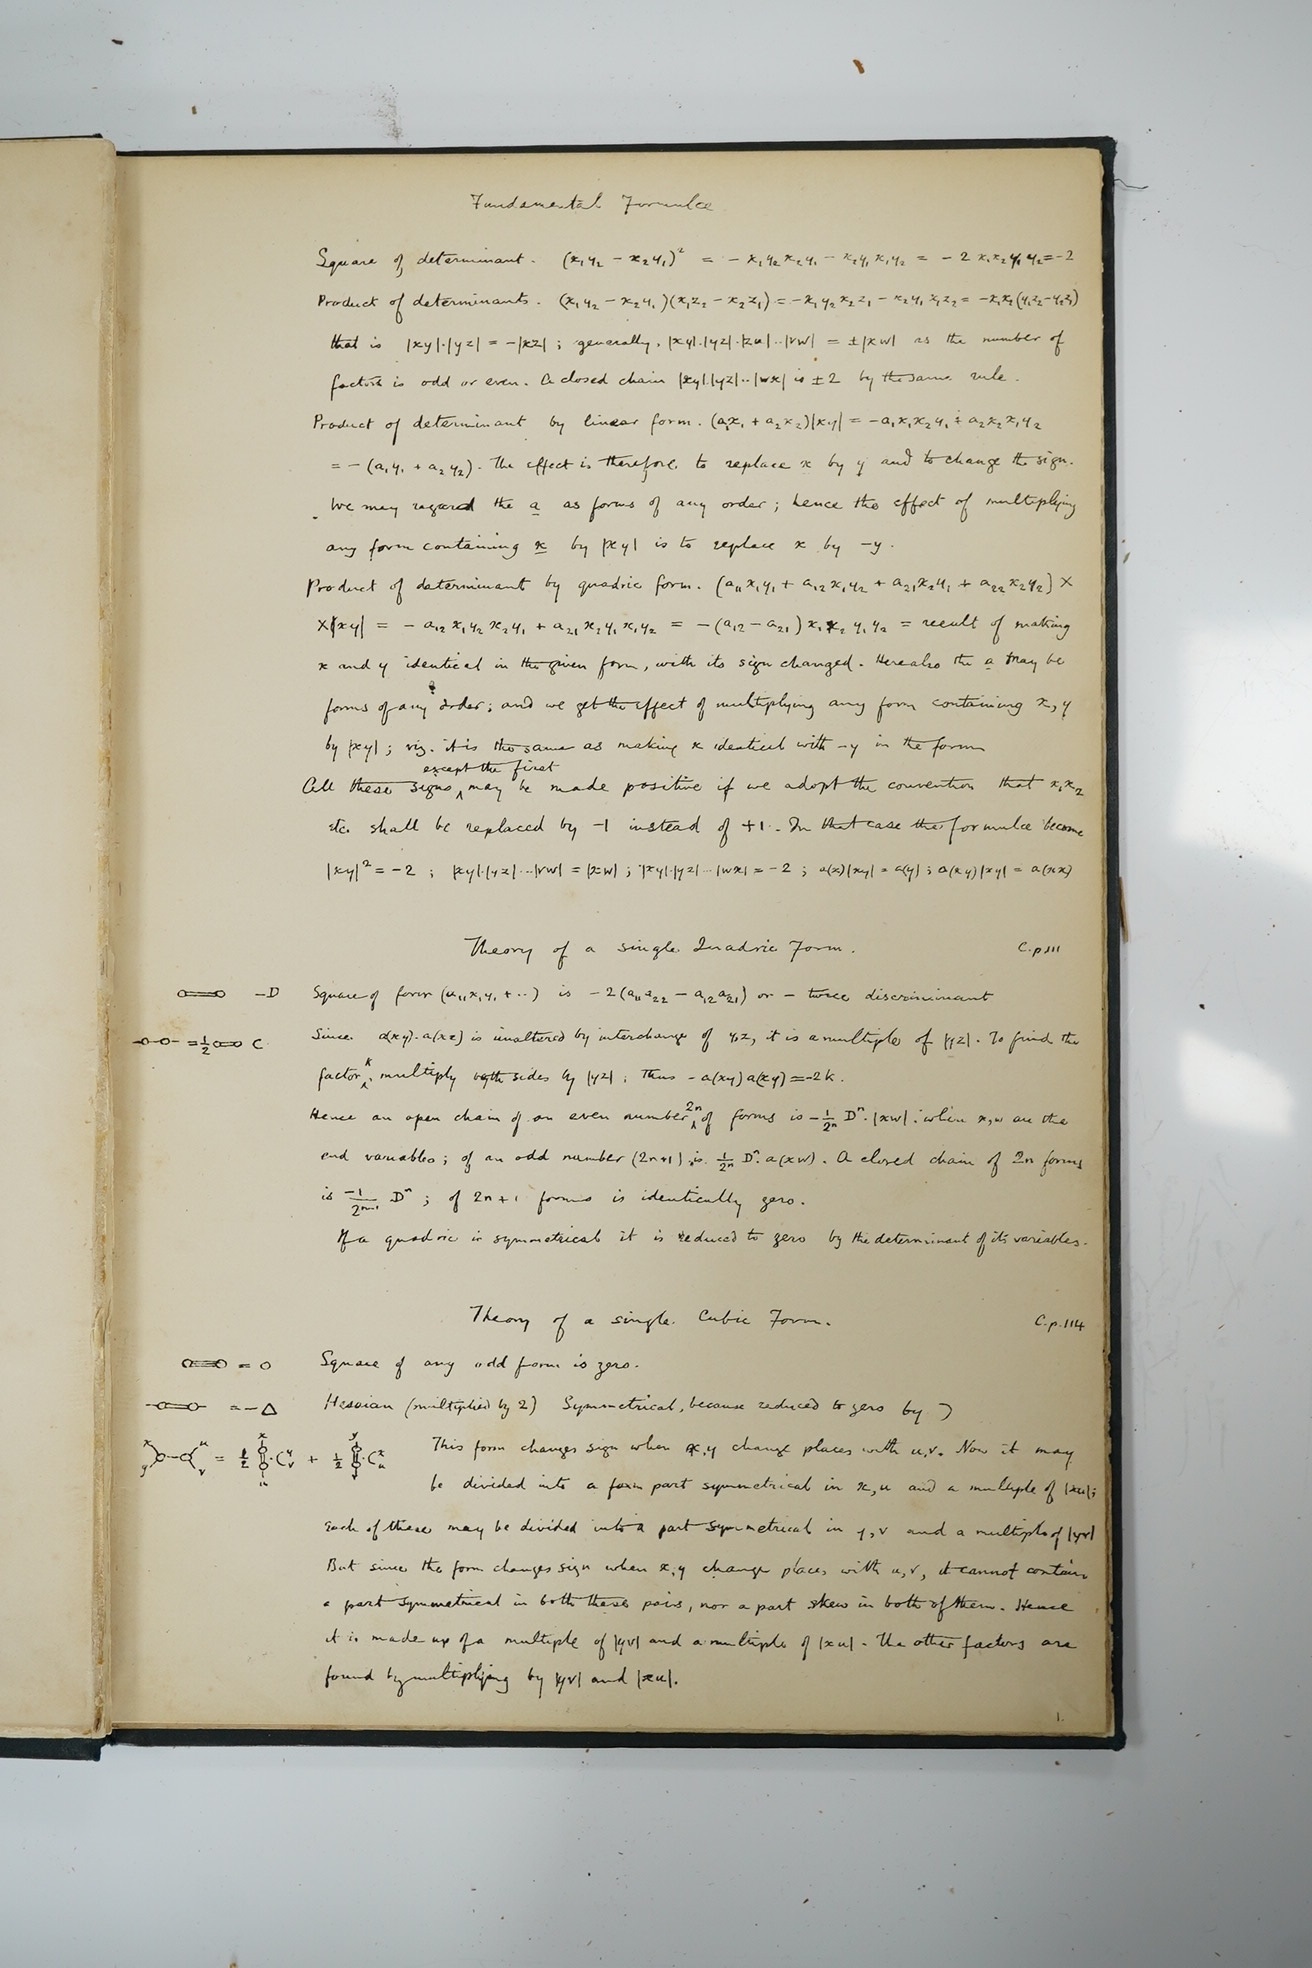 Fundamental Formulæ
Square of determinant. (x₁y₂ − x₂y₁)² = − x₁y₂x₂y₁ − x₂y₁x₁y₂ = − 2 x₁x₂y₁y₂=−2
Product of determinants. (x₁y₂ − x₂y₁)(x₁z₂ − x₂z₁) = −x₁y₂x₂z₁ − x₂y₁x₁z₂ = −x₁x₂(y₁z₂−y₂z₁)
that is |xy|·|yz| = −|xz| ; generally, |xy|·|yz|·|zu|··|vw| = ±|xw| as the number of
factors is odd or even. A closed chain |xy|.|yz|··|wx| is ±2 by the same rule.
Product of determinant by linear form. (a₁x₁ + a₂x₂)|xy| = −a₁x₁x₂y₁ + a₂x₂x₁y₂
= − (a₁y₁ + a₂y₂). The effect is therefore to replace x by y and to change the sign.
We may regard the a as forms of any order; hence the effect of multiplying
any form containing x by |xy| is to replace x by −y.
Product of determinant by quadric form. (a₁₁x₁y₁ + a₁₂x₁y₂ + a₂₁x₂y₁ + a₂₂x₂y₂) ×
×|xy| = − a₁₂x₁y₂x₂y₁ + a₂₁x₂y₁x₁y₂ = −(a₁₂ − a₂₁) x₁x₂y₁y₂ = result of making
x and y identical in the given form, with its sign changed. Here also the a may be
forms of any order; and we get the effect of multiplying any form containing x, y
by |xy|; viz. it is the same as making x identical with −y in the form
except the first
All these signs ‸ may be made positive if we adopt the convention that x₁x₂
etc. shall be replaced by −1 instead of +1. In that case the formulæ become
|xy|² = −2 ; |xy|·|yz|···|vw| = |xw| ; |xy|·|yz|···|wx| = −2 ; a(x)|xy| = a(y) ; a(xy)|xy| = a(xx)
Theory of a single Quadric Form. C.p.111
−D Square of form (a₁₁x₁y₁ + ··) is −2(a₁₁a₂₂ − a₁₂a₂₁) or − twice discriminant
= ½ C Since a(xy)·a(xz) is unaltered by interchange of y, z, it is a multiple of |yz|. To find the
factor ‸ k, multiply both sides by |yz|; thus − a(xy) a(xy) = −2k.
Hence an open chain of an even number ‸ 2n of forms is −1/2ⁿ Dⁿ·|xw|: when x, w are the
end variables; of an odd number (2n+1) is 1/2ⁿ Dⁿ·a(xw). A closed chain of 2n forms
is −1/2ⁿ⁻¹ Dⁿ ; of 2n+1 forms is identically zero.
If a quadric is symmetrical it is reduced to zero by the determinant of its variables.
Theory of a single Cubic Form. C.p.114
= 0 Square of any odd form is zero.
= −Δ Hessian (multiplied by 2) Symmetrical, because reduced to zero by )
x y u v = ½ x u · C y v + ½ y v · C x u This form changes sign when x, y change places with u, v. Now it may
be divided into a form part symmetrical in x, u and a multiple of |xu|;
each of these may be divided into a part symmetrical in y, v and a multiple of |yv|
But since the form changes sign when x, y change places with u, v, it cannot contain
a part symmetrical in both these pairs, nor a part skew in both of them. Hence
it is made up of a multiple of |yv| and a multiple of |xu|. The other factors are
found by multiplying by |yv| and |xu|.
1.